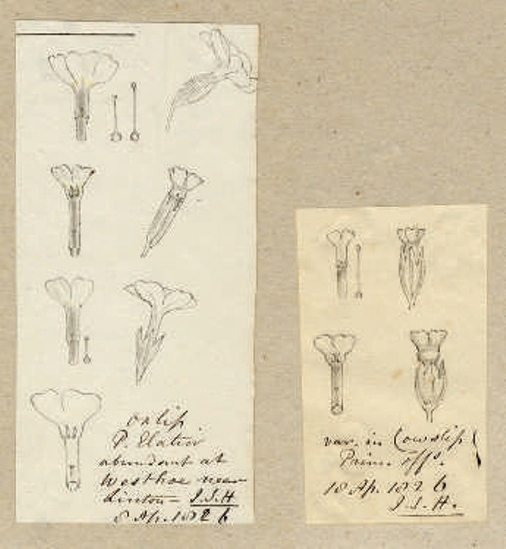 oxlip
P. Elatior
abundant at
Westhoe near
Linton - J.S.H
8 Ap. 1826
var. in Cowslip
Prim. off.
18 Ap. 1826
J.S.H.